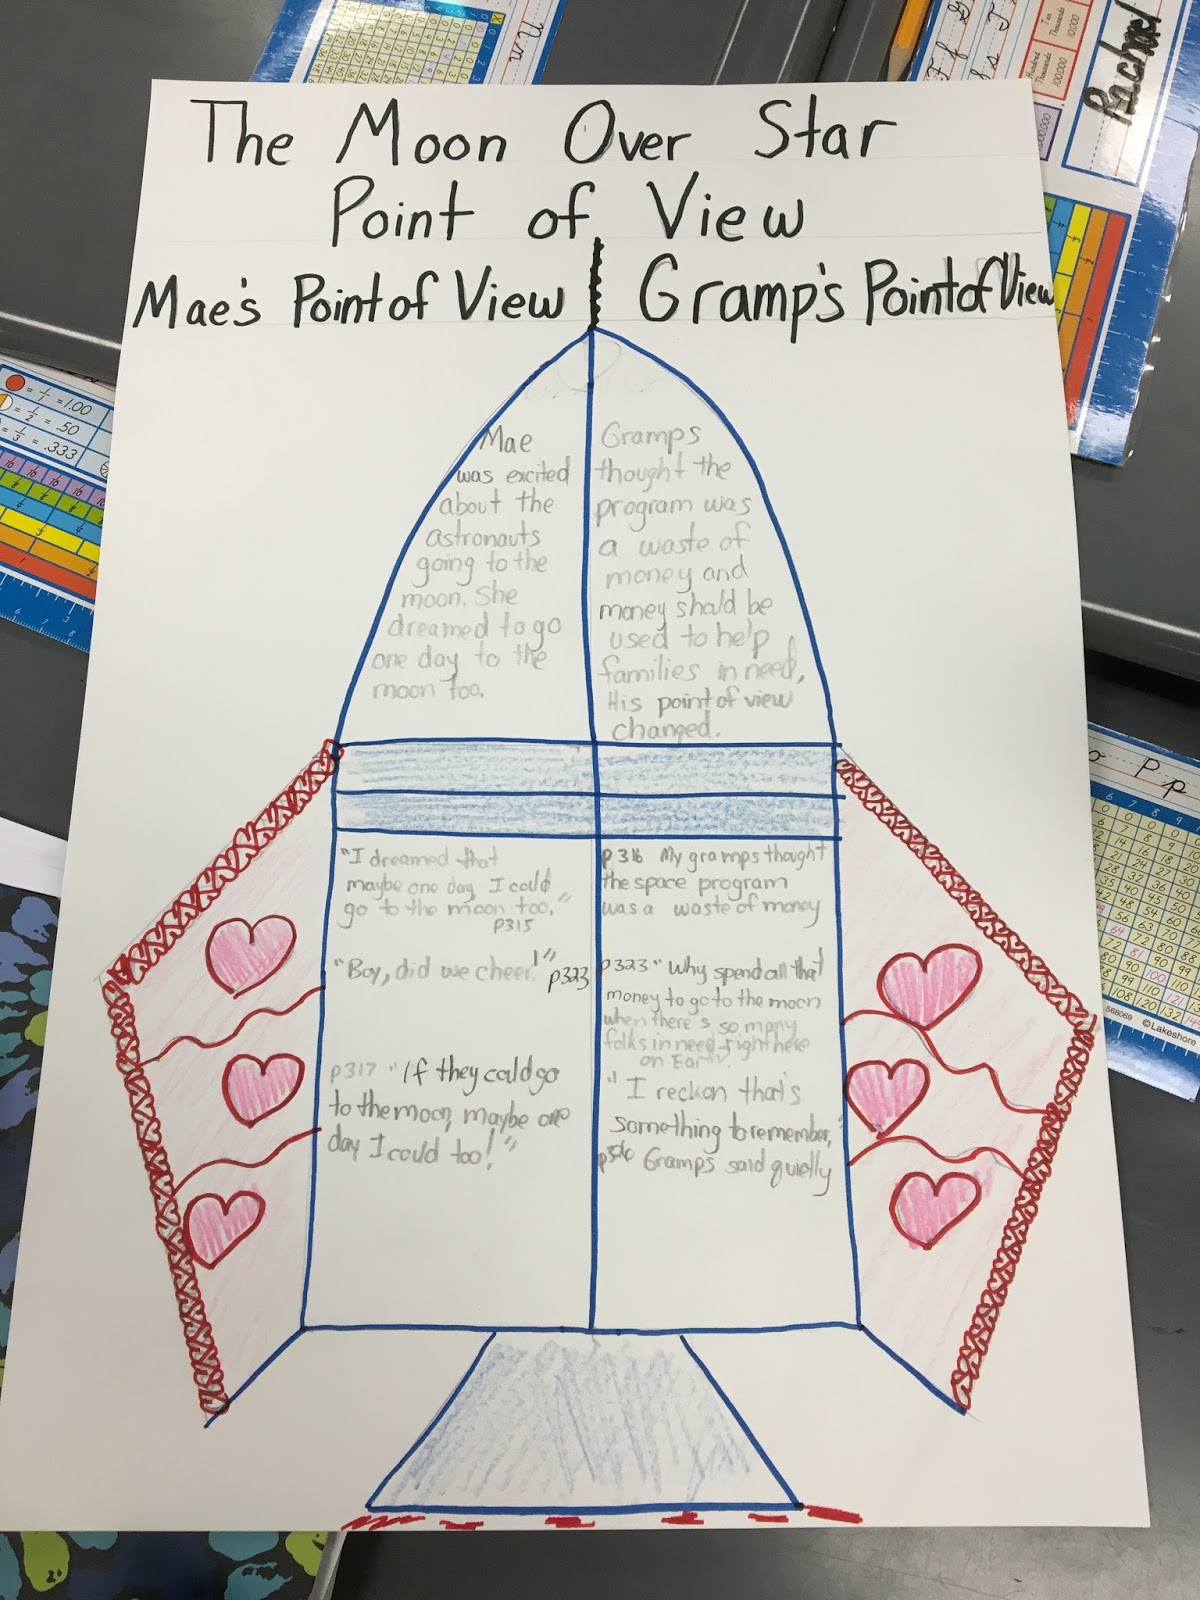 The Moon Over Star
Point of View
Mae's Point of View
Gramp's Point of View
Mae
was excited
about the
astronauts
going to the
moon. She
dreamed to go
one day to the
moon too.
Gramps
thought the
program was
a waste of
money and
money should be
used to help
families in need,
His point of view
changed.
"I dreamed that
maybe one day I could
go to the moon too."
p315
"Boy, did we cheer!" p323
p317 "If they could go
to the moon, maybe one
day I could too!"
p316 My gramps thought
the space program
was a waste of money
p323 "Why spend all that
money to go to the moon
when there's so many
folks in need right here
on Earth.
"I reckon that's
something to remember,"
Gramps said quietly
Rachael
Hundred
Thousands
100,000
Ten
Thousands
10,000
= 1 = 1.00
= 1/2 = .50
= 1/3 = .333
N n
P p
568069 ©Lakeshore